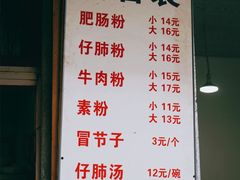 肥肠粉 小 14元
大 16元
仔肺粉 小 14元
大 16元
牛肉粉 小 15元
大 17元
素粉 小 11元
大 13元
冒节子 3元/个
仔肺汤 12元/碗